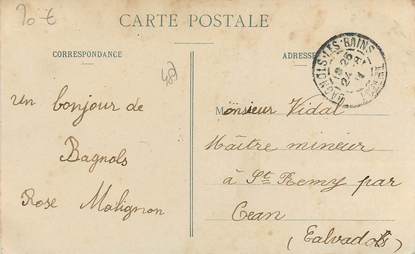 20 €
CARTE POSTALE
CORRESPONDANCE
ADRESSE
BAGNOLS-LES-BAINS
un bonjour de
Bagnols
Rose Malignon
Monsieur Vidal
Maître mineur
à St Remy par
Cean
(Calvados)